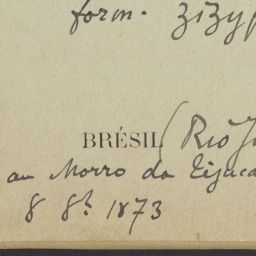 form. zizyp
BRÉSIL (Rio J
au Morro da Tijuca
8 8b 1873